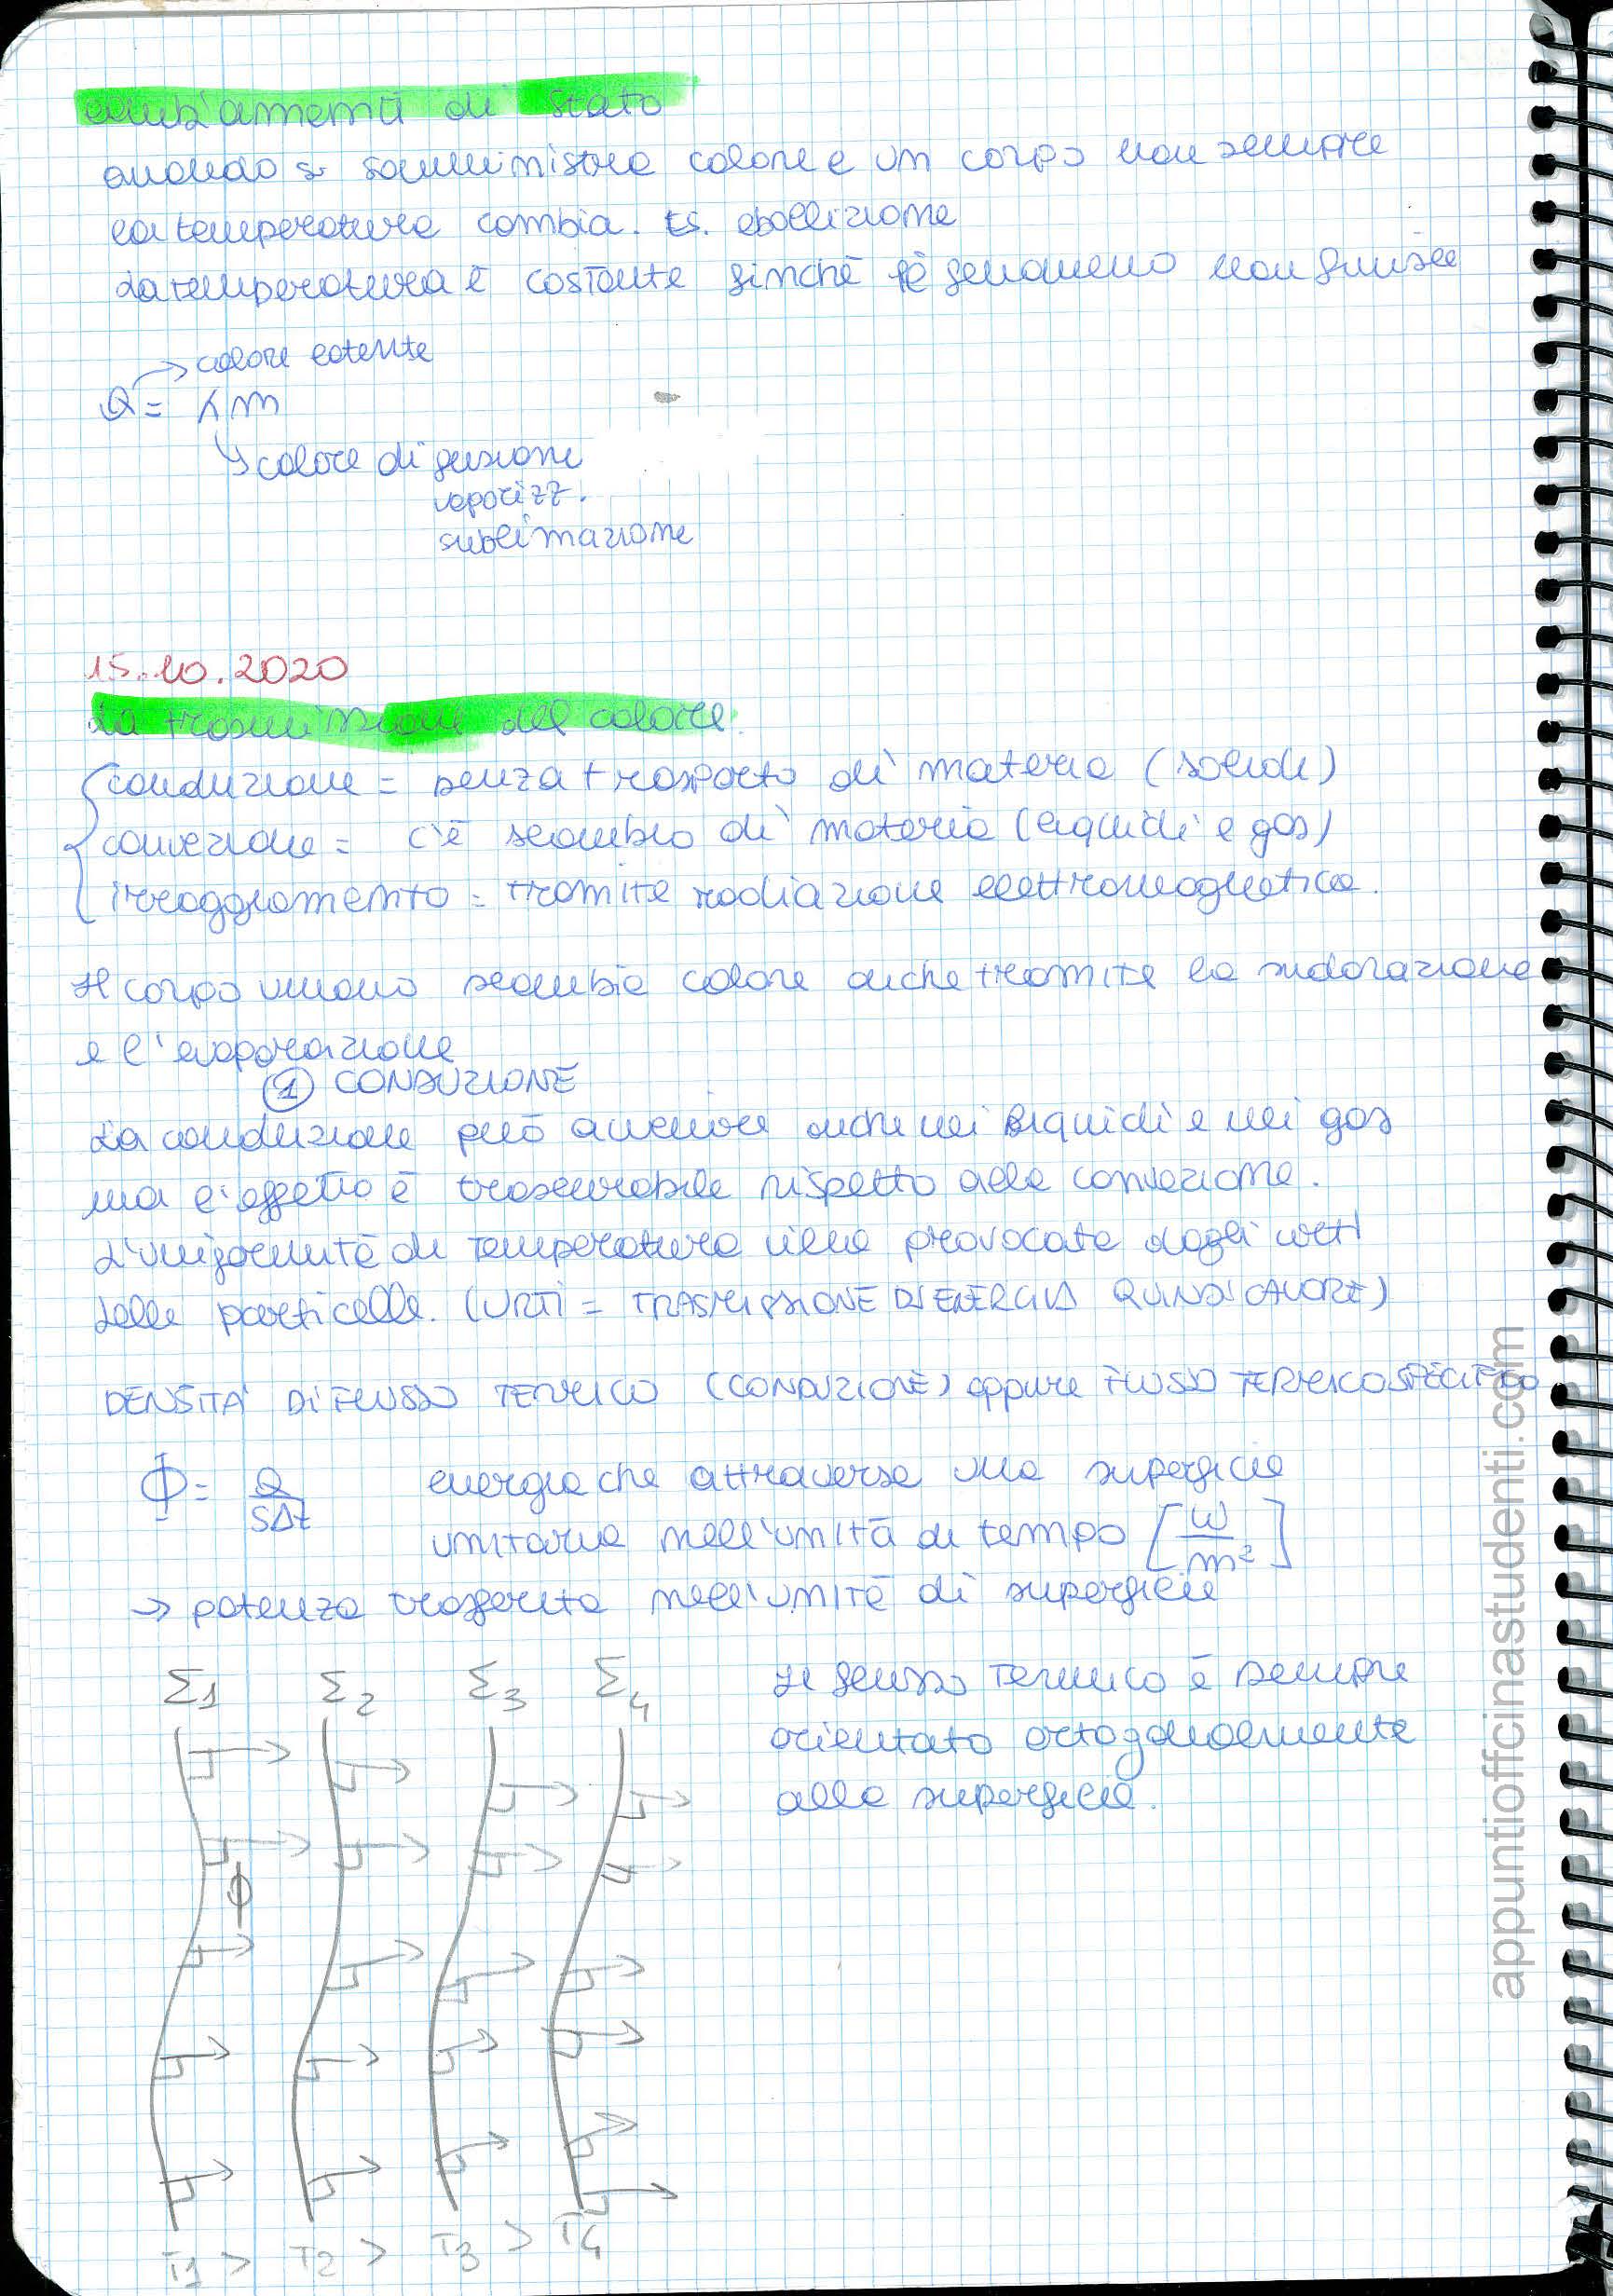 cambiamenti di stato
quando si somministra calore a un corpo non sempre
la temperatura cambia. Es. ebollizione
La temperatura è costante finchè il fenomeno non finisce
calore latente
Q = λm
calore di fusione
vaporizz.
sublimazione
15.10.2020
La trasmissione del calore.
conduzione = senza trasporto di materia (solidi)
convezione = c'è scambio di materia (liquidi e gas)
irraggiamento = tramite radiazione elettromagnetica.
Il corpo umano scambia calore anche tramite la sudorazione
e l'evaporazione
① CONDUZIONE
La conduzione può avvenire anche nei liquidi e nei gas
ma l'effetto è trascurabile rispetto alla convezione.
L'uniformità di temperatura viene provocata dagli urti
delle particelle. (URTI = TRASMISSIONE DI ENERGIA QUINDI CALORE)
DENSITA' DI FLUSSO TERMICO (CONDUZIONE) oppure FLUSSO TERMICO SPECIFICO
Φ = Q / SΔt energia che attraversa una superficie
unitaria nell'unità di tempo [W/m²]
→ potenza trasferita nell'unità di superficie
Σ1 Σ2 Σ3 Σ4
Il flusso termico è sempre
orientato ortogonalmente
alla superficie.
Φ
T1 > T2 > T3 > T4
appuntioffcinastudenti.com